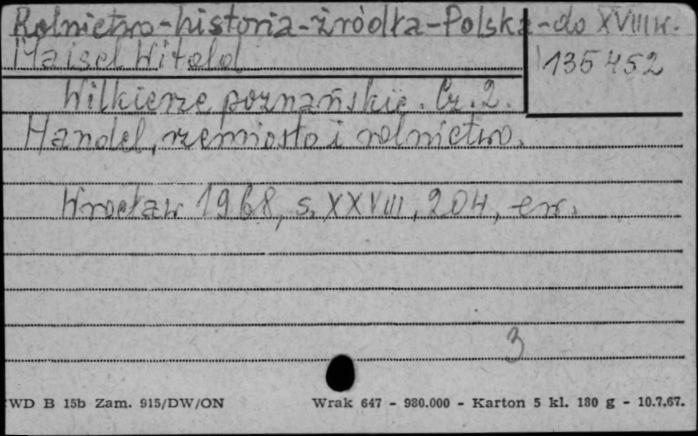 Rolnictwo-historia-źródła-Polska-do XVIII w.
Maisel Witold
135452
Wilkierze poznańskie. Cz. 2.
Handel, rzemiosło i rolnictwo.
Wrocław 1968, s. XXVIII, 204, err.
3
WD B 15b Zam. 915/DW/ON Wrak 647 - 980.000 - Karton 5 kl. 180 g - 10.7.67.